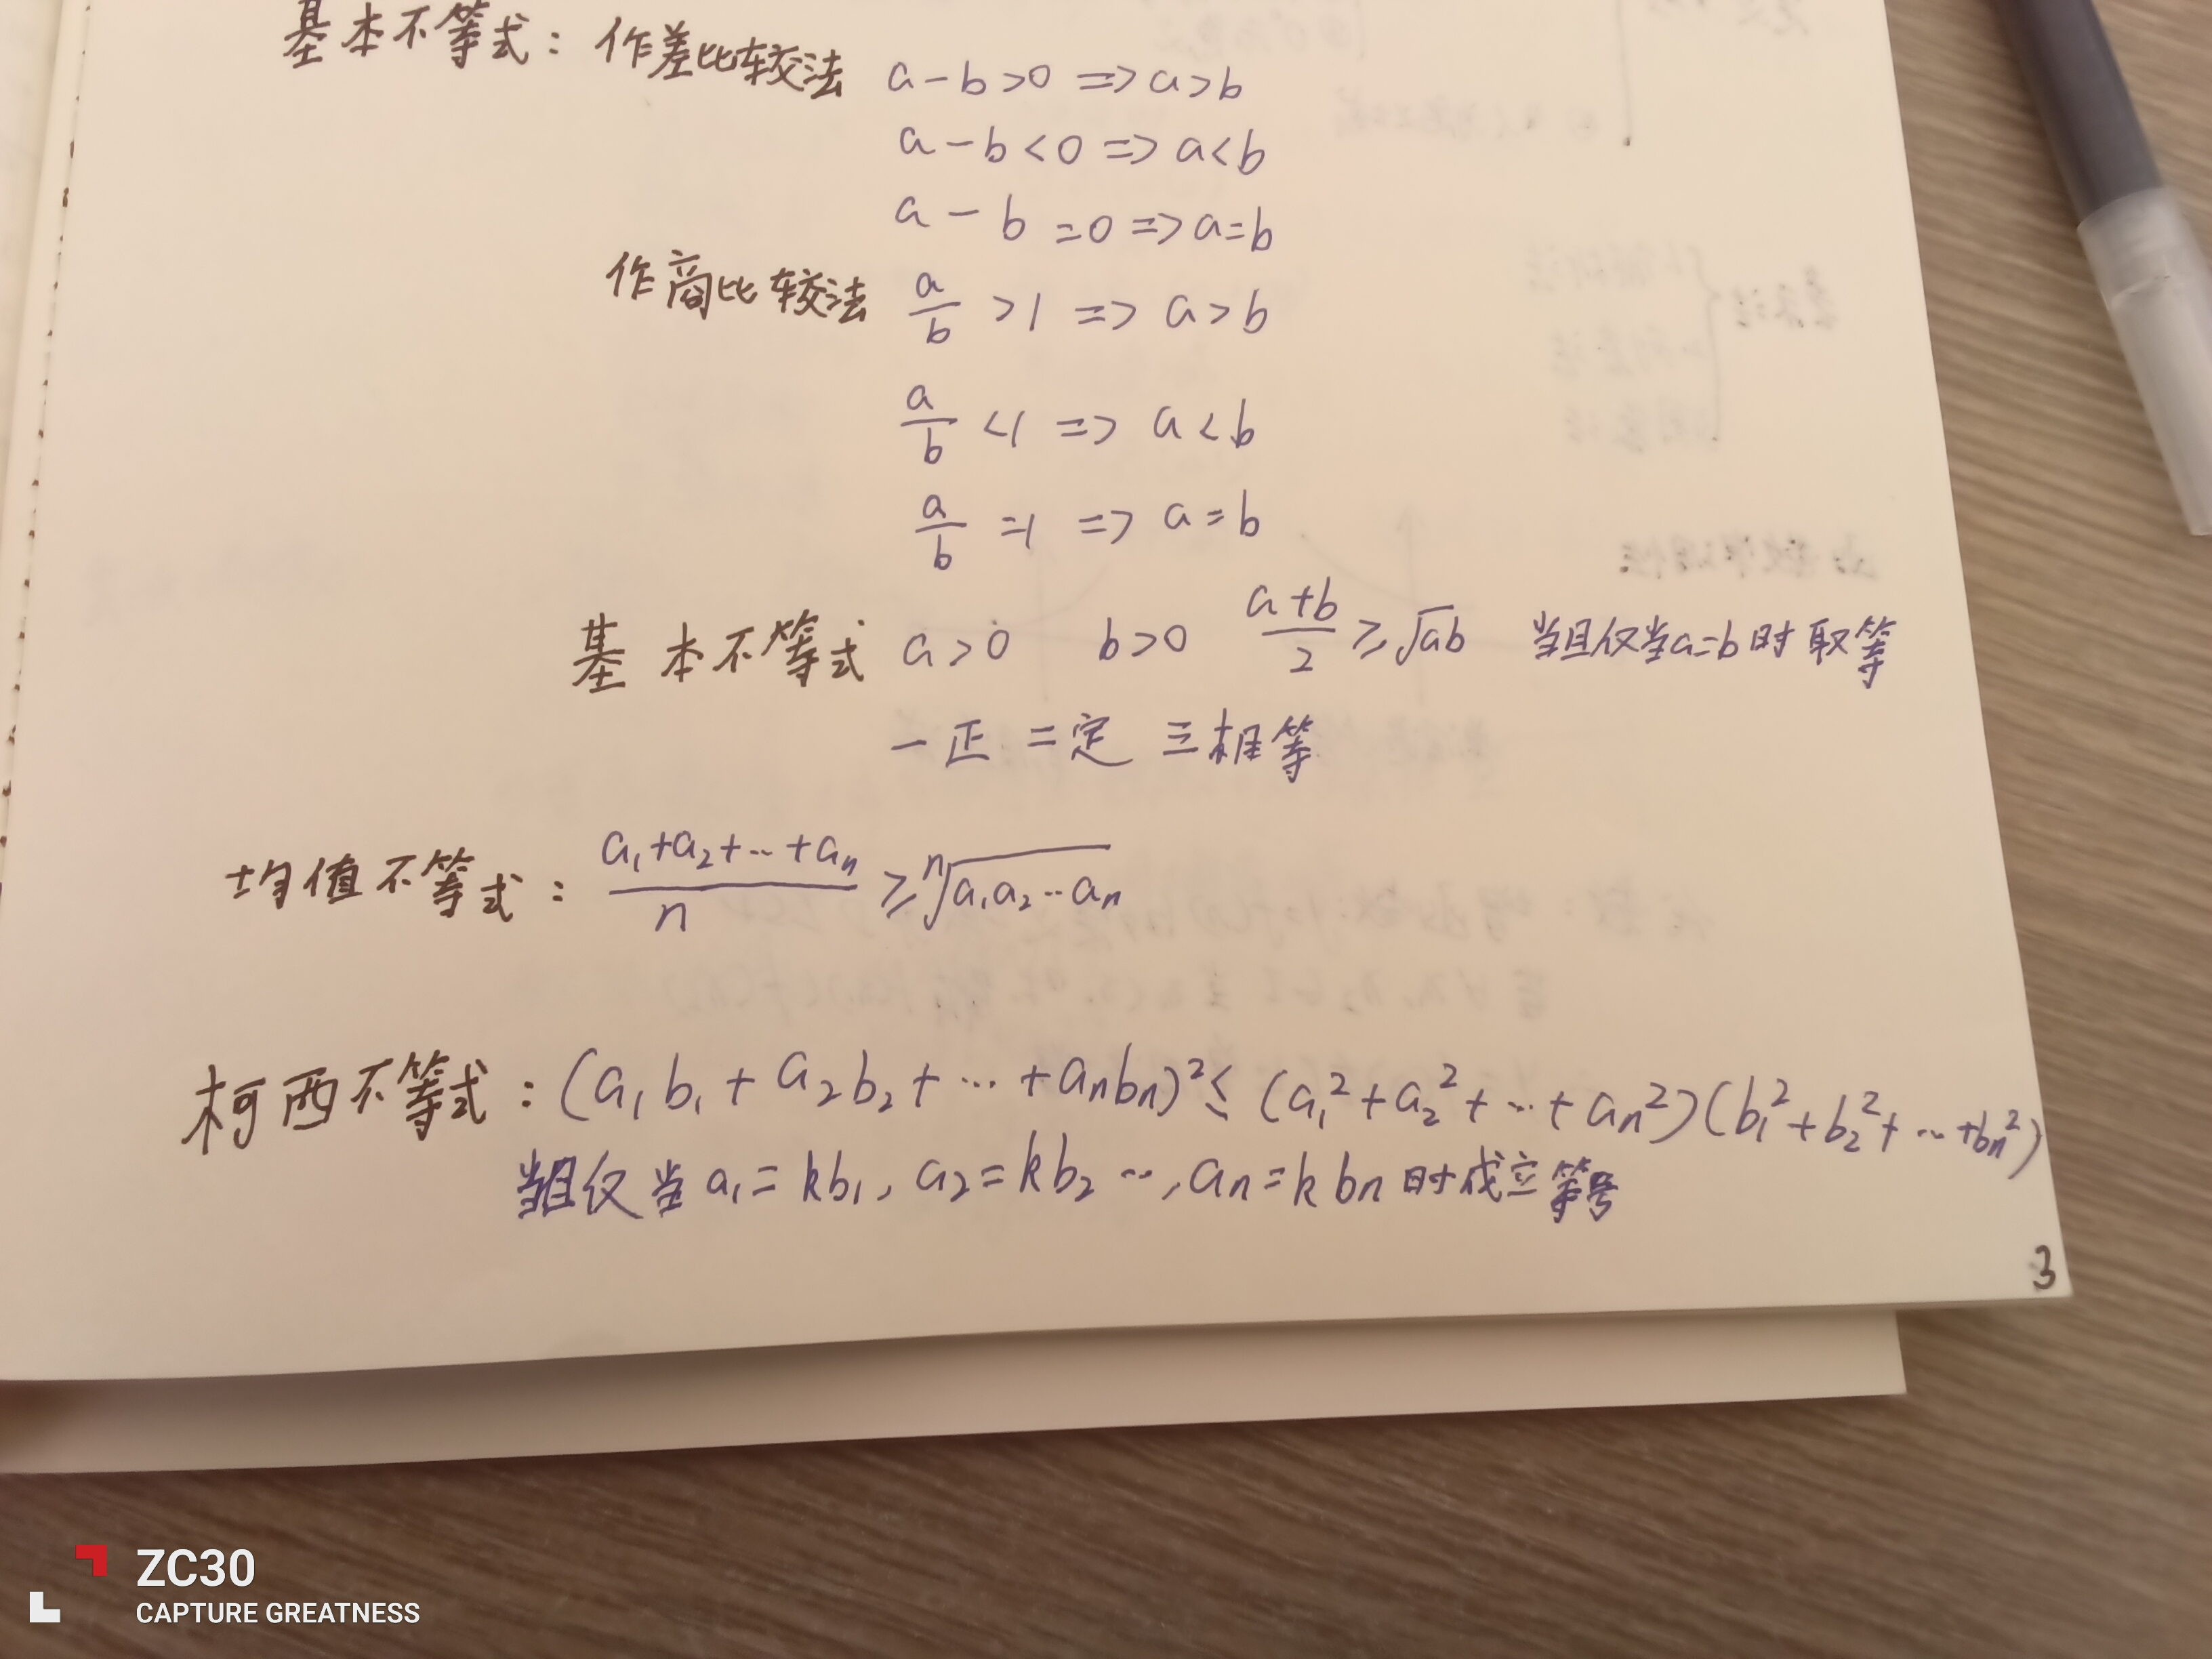 基本不等式：作差比较法 a-b>0 => a>b
a-b<0 => a<b
a-b=0 => a=b
作商比较法 a/b >1 => a>b
a/b <1 => a<b
a/b =1 => a=b
基本不等式 a>0 b>0 (a+b)/2 ≥ √ab 当且仅当a=b时取等
一正 二定 三相等
均值不等式： (a₁+a₂+…+aₙ)/n ≥ ⁿ√a₁a₂…aₙ
柯西不等式：(a₁b₁+a₂b₂+…+aₙbₙ)² ≤ (a₁²+a₂²+…+aₙ²)(b₁²+b₂²+…+bₙ²)
当且仅当 a₁=kb₁, a₂=kb₂ …, aₙ=kbₙ 时成立等号
3
ZC30
CAPTURE GREATNESS